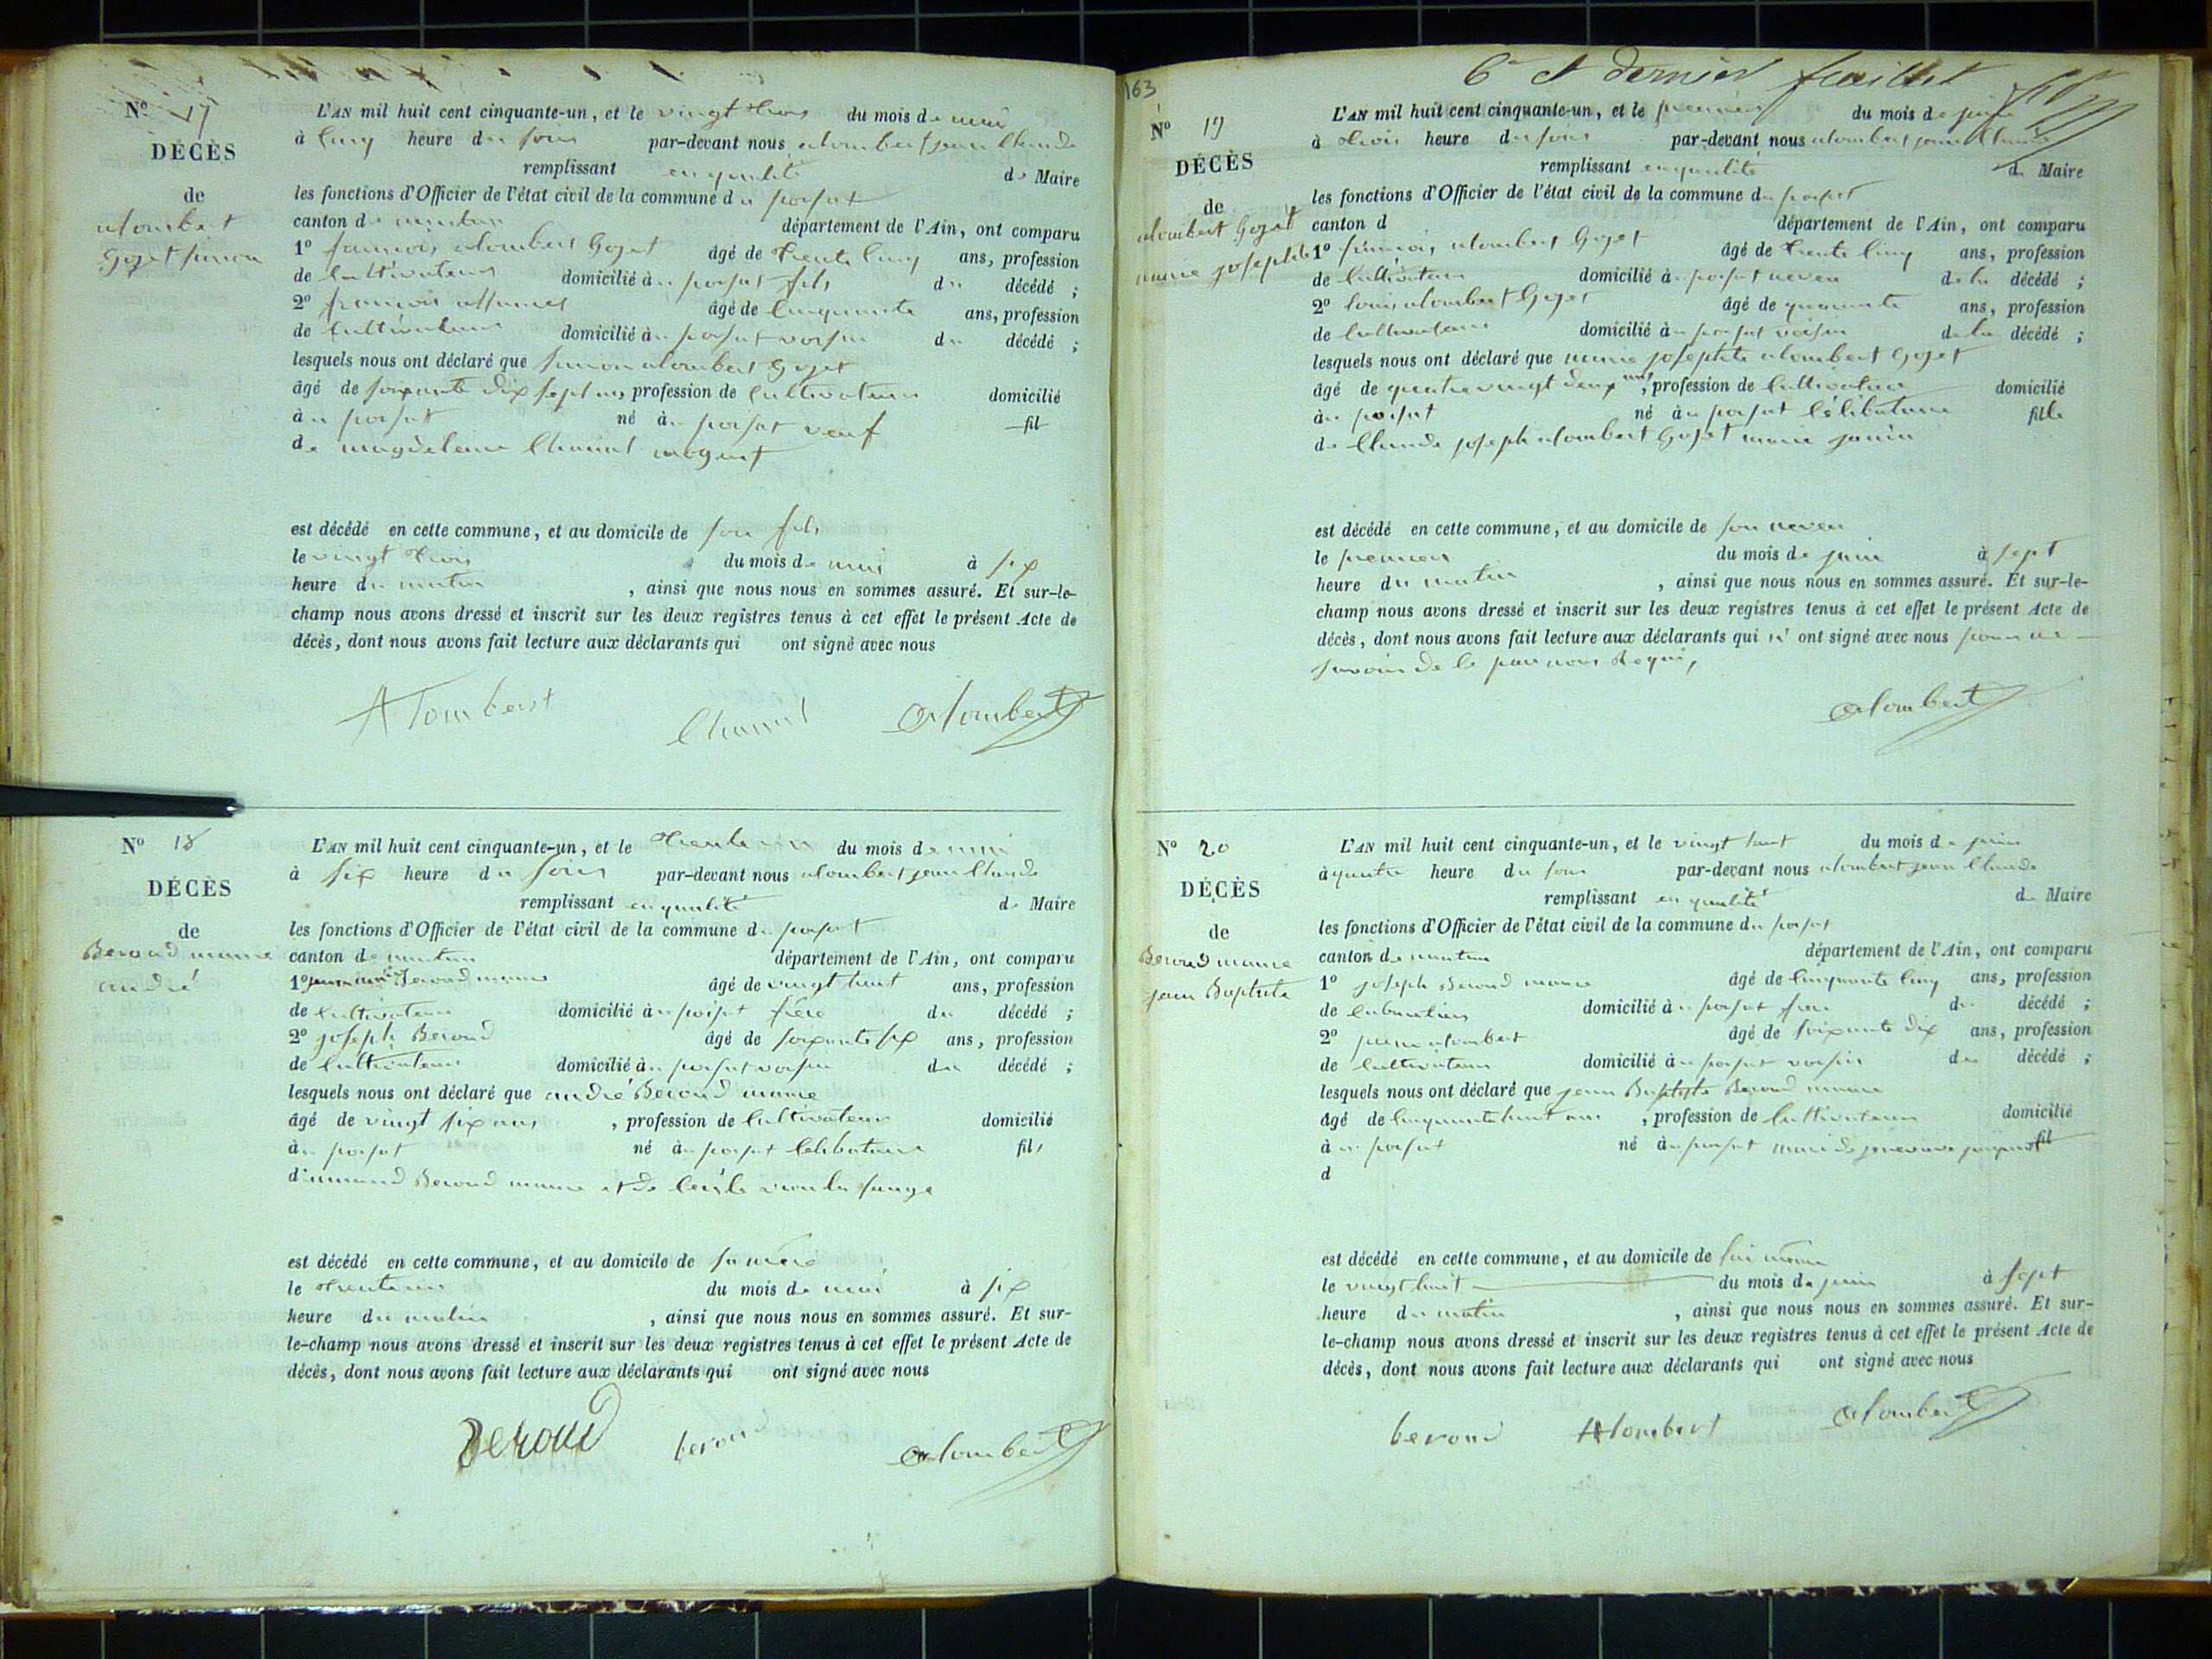 N° 17
DÉCÈS
de
alombert
Gojet simon
L'AN mil huit cent cinquante-un, et le vingt trois du mois de mai
à cinq heure du soir par-devant nous alombert jean Claude
remplissant en qualité de Maire
les fonctions d'Officier de l'état civil de la commune du poisat
canton de nantua département de l'Ain, ont comparu
1° françois alombert Gojet âgé de trente cinq ans, profession
de Cultivateur domicilié au poisat fils du décédé ;
2° françois âgé de Cinquante ans, profession
de Cultivateur domicilié au poisat voisin du décédé ;
lesquels nous ont déclaré que simon alombert Gojet
âgé de soixante dix sept ans profession de Cultivateur domicilié
au poisat né au poisat veuf fil
de magdeleine Chanel
est décédé en cette commune, et au domicile de son fils
le vingt trois du mois de mai à six
heure du matin , ainsi que nous nous en sommes assuré. Et sur-le-
champ nous avons dressé et inscrit sur les deux registres tenus à cet effet le présent Acte de
décès, dont nous avons fait lecture aux déclarants qui ont signé avec nous
Alombert Chanel alombert
N° 18
DÉCÈS
de
Beroud mame
andré
L'AN mil huit cent cinquante-un, et le trente un du mois de mai
à six heure du soir par-devant nous alombert jean Claude
remplissant en qualité de Maire
les fonctions d'Officier de l'état civil de la commune du poisat
canton de nantua département de l'Ain, ont comparu
1° Beroud mame âgé de vingt huit ans, profession
de Cultivateur domicilié au poisat frère du décédé ;
2° joseph Beroud âgé de soixante six ans, profession
de Cultivateur domicilié au poisat voisin du décédé ;
lesquels nous ont déclaré que andré Beroud mame
âgé de vingt six ans , profession de Cultivateur domicilié
au poisat né au poisat Celibataire fils
d'armand Beroud mame et de
est décédé en cette commune, et au domicile de sa mère
le trente un du mois de mai à six
heure du matin , ainsi que nous nous en sommes assuré. Et sur-
le-champ nous avons dressé et inscrit sur les deux registres tenus à cet effet le présent Acte de
décès, dont nous avons fait lecture aux déclarants qui ont signé avec nous
Beroud beroud alombert
163
6e et dernier feuillet
N° 19
DÉCÈS
de
alombert Gojet
marie josephte
L'AN mil huit cent cinquante-un, et le premier du mois de juin
à trois heure du soir par-devant nous alombert jean Claude
remplissant en qualité de Maire
les fonctions d'Officier de l'état civil de la commune du poisat
canton d département de l'Ain, ont comparu
1° françois alombert Gojet âgé de trente cinq ans, profession
de Cultivateur domicilié au poisat neveu de la décédé ;
2° louis alombert Gojet âgé de quarante ans, profession
de Cultivateur domicilié au poisat voisin de la décédé ;
lesquels nous ont déclaré que marie josephte alombert Gojet
âgé de quatre vingt deux ans, profession de Cultivatrice domicilié
au poisat né au poisat Célibataire fille
de Claude joseph alombert Gojet marie janin
est décédé en cette commune, et au domicile de son neveu
le premier du mois de juin à sept
heure du matin , ainsi que nous nous en sommes assuré. Et sur-le-
champ nous avons dressé et inscrit sur les deux registres tenus à cet effet le présent Acte de
décès, dont nous avons fait lecture aux déclarants qui n' ont signé avec nous pour ne
savoir de ce par nous requis,
alombert
N° 20
DÉCÈS
de
Beroud mame
jean Baptiste
L'AN mil huit cent cinquante-un, et le vingt huit du mois de juin
à quatre heure du soir par-devant nous alombert jean Claude
remplissant en qualité de Maire
les fonctions d'Officier de l'état civil de la commune du poisat
canton de nantua département de l'Ain, ont comparu
1° joseph Beroud mame âgé de Cinquante cinq ans, profession
de Cabaretier domicilié au poisat frere du décédé ;
2° alombert âgé de soixante dix ans, profession
de Cultivateur domicilié au poisat voisin du décédé ;
lesquels nous ont déclaré que jean Baptiste Beroud mame
âgé de Cinquante huit ans , profession de Cultivateur domicilié
au poisat né au poisat mari de fil
d
est décédé en cette commune, et au domicile de lui même
le vingt huit du mois de juin à sept
heure du matin , ainsi que nous nous en sommes assuré. Et sur-
le-champ nous avons dressé et inscrit sur les deux registres tenus à cet effet le présent Acte de
décès, dont nous avons fait lecture aux déclarants qui ont signé avec nous
beroud Alombert alombert